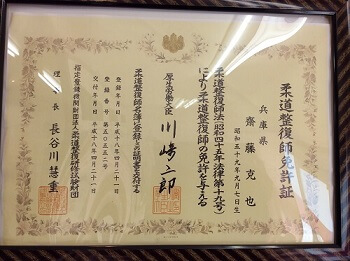 柔道整復師免許証
兵庫県
齋藤克也
昭和五十九年九月七日生
柔道整復師法(昭和四十五年法律第十九号)
により柔道整復師の免許を与える
厚生労働大臣 川崎二郎
柔道整復師名簿に登録したことを証明書を交付する
登録年月日 平成十八年四月二十一日
登録番号 第五〇五五二号
交付年月日 平成十八年四月二十一日
指定登録機関財団法人柔道整復研修試験財団
理事長 長谷川慧重